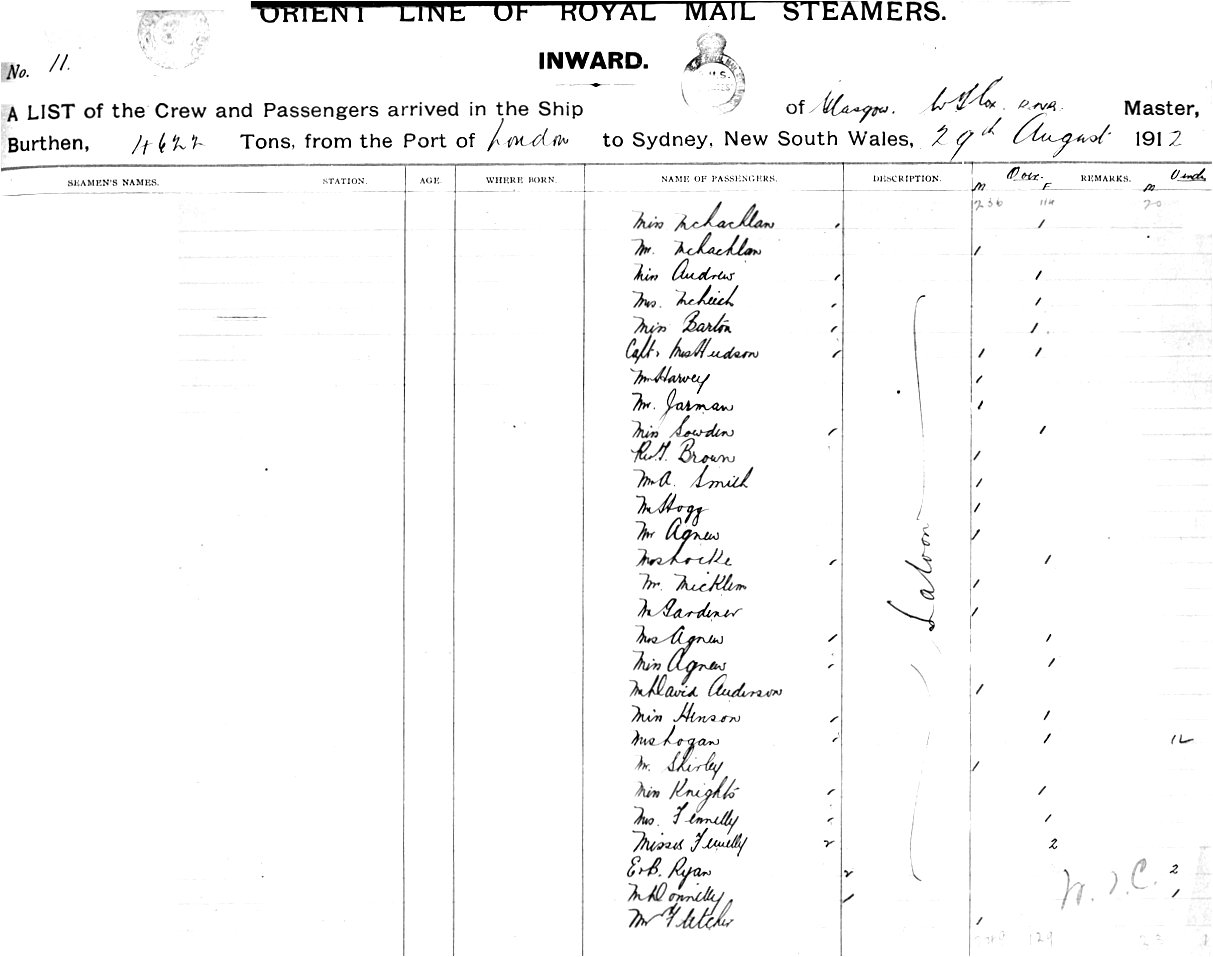 ORIENT LINE OF ROYAL MAIL STEAMERS.
INWARD.
No. 11.
A LIST of the Crew and Passengers arrived in the Ship of Glasgow. Master,
Burthen, 4622 Tons, from the Port of London to Sydney, New South Wales, 29th August 1912
SEAMEN'S NAMES. STATION. AGE. WHERE BORN. NAME OF PASSENGERS. DESCRIPTION. M Over. F REMARKS. M Under
236 114 20
Miss McLachlan 1
Mr. McLachlan 1
Miss Andrew 1
Mrs. McLeich 1
Miss Barton 1
Capt. Mrs Hudson 1 1
Mr Harvey 1
Mr. Jarman 1
Miss Sowden 1
Rev. T. Brown 1
Mr A. Smith 1
Mr Hogg 1
Mr Agnew 1
Mrs Locke 1
Mr. Micklem 1
Mr Gardener 1
Saloon
Mrs Agnew 1
Miss Agnew 1
Mr David Anderson 1
Miss Henson 1
Mrs Logan 1 12
Mr. Shirley 1
Miss Knights 1
Mrs. Fennelly 1
Misses Fennelly 2 2
E & B. Ryan 2 2
M Donnelly 1 1
Mr Fletcher 1
129